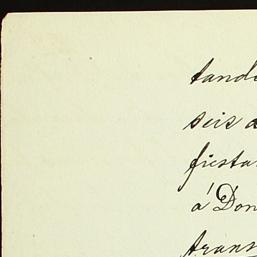 tand
seis a
fiesta
á Don
trans